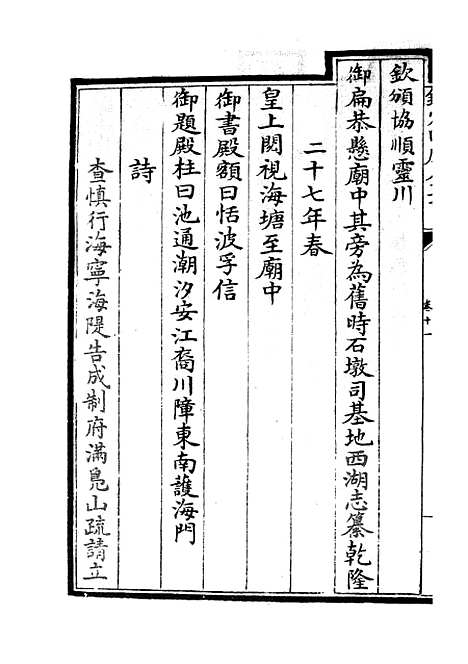 欽頒協順靈川
御扁恭懸廟中其旁為舊時石墩司基地西湖志纂乾隆
二十七年春
皇上閱視海塘至廟中
御書殿額曰恬波孚信
御題殿柱曰池通潮汐安江裔川障東南護海門
詩
查慎行海寧海隄告成制府滿鳧山疏請立